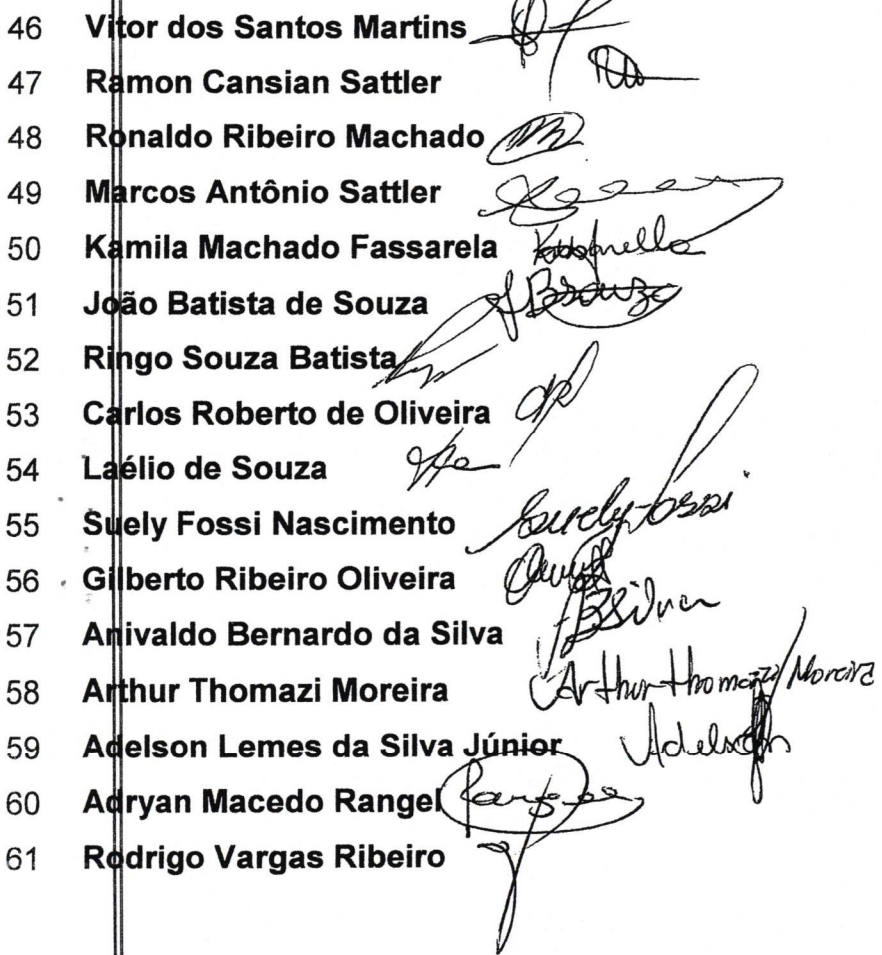 46 Vitor dos Santos Martins
47 Ramon Cansian Sattler
48 Ronaldo Ribeiro Machado
49 Marcos Antônio Sattler
50 Kamila Machado Fassarela
51 João Batista de Souza JBSouza
52 Ringo Souza Batista
53 Carlos Roberto de Oliveira
54 Laélio de Souza
55 Suely Fossi Nascimento Suely Fossi
56 Gilberto Ribeiro Oliveira
57 Anivaldo Bernardo da Silva BSilva
58 Arthur Thomazi Moreira Arthur Thomazi Moreira
59 Adelson Lemes da Silva Júnior Adelson
60 Adryan Macedo Rangel Rangel
61 Rodrigo Vargas Ribeiro